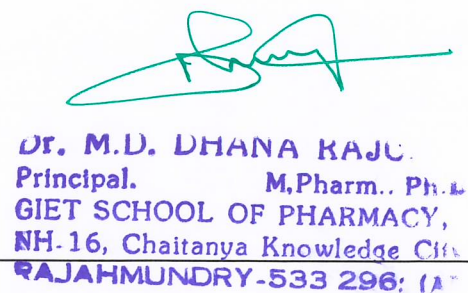 Dr. M.D. DHANA RAJU.
Principal. M,Pharm.. Ph.D
GIET SCHOOL OF PHARMACY,
NH-16, Chaitanya Knowledge City
RAJAHMUNDRY-533 296: (A